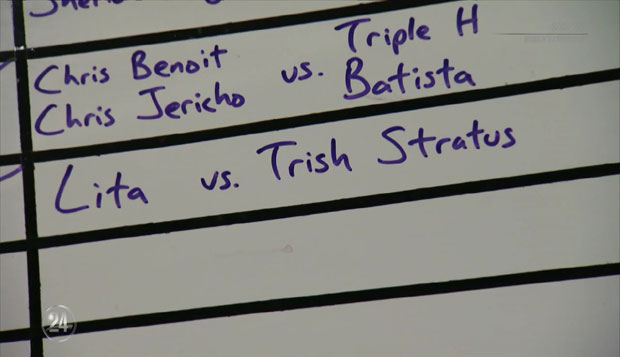 Chris Benoit Triple H
vs.
Chris Jericho Batista
Lita vs. Trish Stratus
24